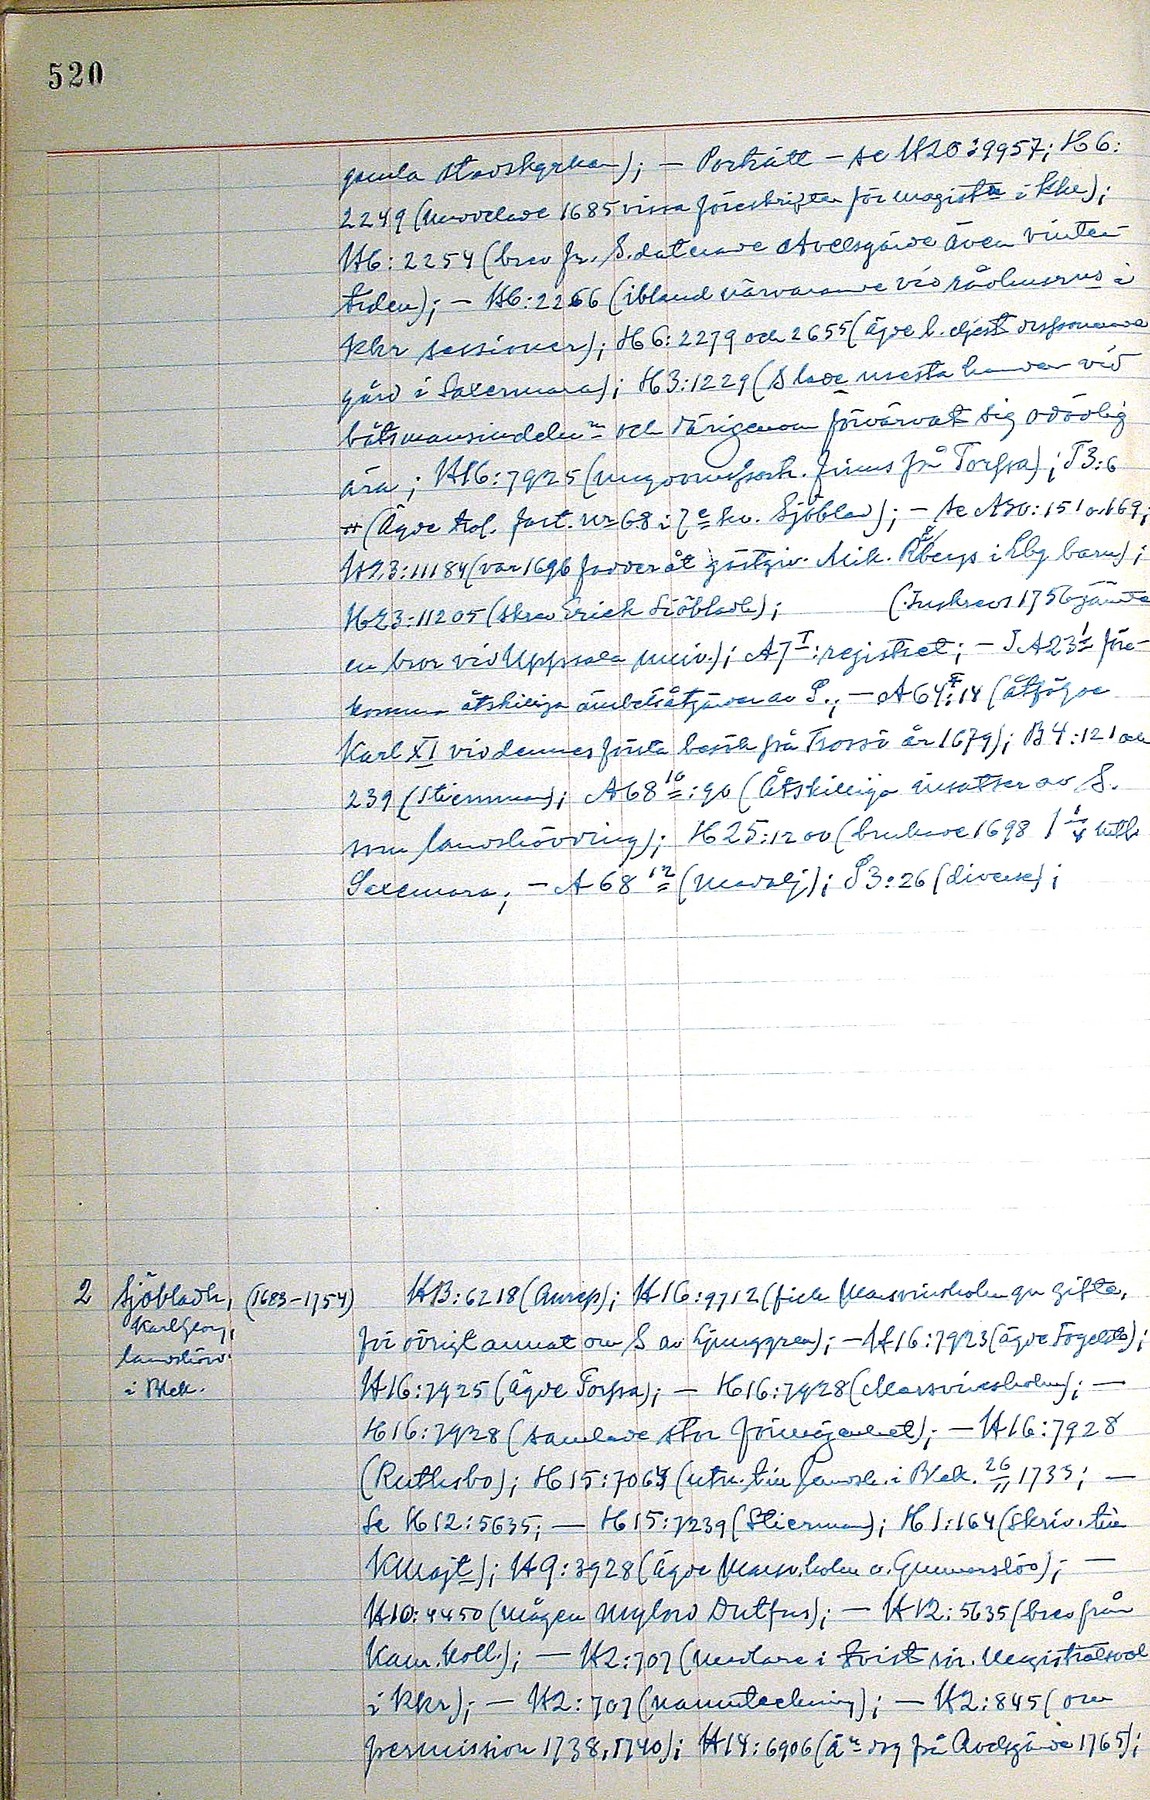 520
gamla stavskyrkan); — Porträtt — se H20:9957; H6:
2249 (utvecklade 1685 vissa föreskrifter för magistr i Kkr);
H6:2254 (brev fr. S. daterade Avelsgärde även vinter-
tiden); — H6:2266 (ibland närvarande vid rådhusrns i
Kkr sessioner); H6:2279 och 2655 (ägde b. djest
gård i Saxemara); H3:1229 (S lade mesta handen vid
båtsmansindeln och därigenom förvärvat sig odödlig
ära; H16:7925 (finns på Torpa); T3:6
(Ägde tol. fast. nr 68 i 7e kv. Sjöblad); — se A30:151 o. 169;
H23:11184 (var 1696 fadder åt gästgiv. Mik. Rbergs i Lby barn);
H23:11205 (skrev Erick Siöbladh); (Inskrevs 1756 jämte
en bror vid Uppsala univ.); A7 I: registret; — I A23 1 före-
komma åtskilliga ämbetsåtgärder av S.; — A64 I:14 (åtföljde
Karl XI vid dennes första besök på Trossö år 1679); B4:121 och
239 (Stiernman); A68 10:90 (Åtskilliga insatser av S.
som landshövding); H25:1200 (brukade 1698 1 1/4 hth
Saxemara; — A68 12 (medalj); S3:26 (diverse);
2 Sjöbladh, (1683–1754) H13:6218 (Anrep); H16:9712 (fick Marsvinsholm gn gifte,
Karl Georg, för övrigt annat om S av Ljunggren); — H16:7923 (ägde Fogelsta);
landshöv. i Blek. H16:7925 (Ägde Torpa); — H16:7928 (Marsvinsholm); —
H16:7928 (samlade stor förmögenhet); — H16:7928
(Ruthsbo); H15:7064 (utn. till landsh. i Blek. 26/11 1733; —
Se H12:5635; — H15:7239 (Stierman); H1:164 (skriv. till
KMajt); H9:3928 (ägde Marsv.holm o. Gunnarslöv); —
H10:4450 (mågen Mylord Dutfus); — H12:5635 (brev från
Kam. Koll.); — H2:707 (medlare i tvist rör. Magistratsval
i Kkr); — H2:707 (namnteckning); — H2:845 (om
permission 1738, 1740); H14:6906 (än dog på Avelsgärde 1765);